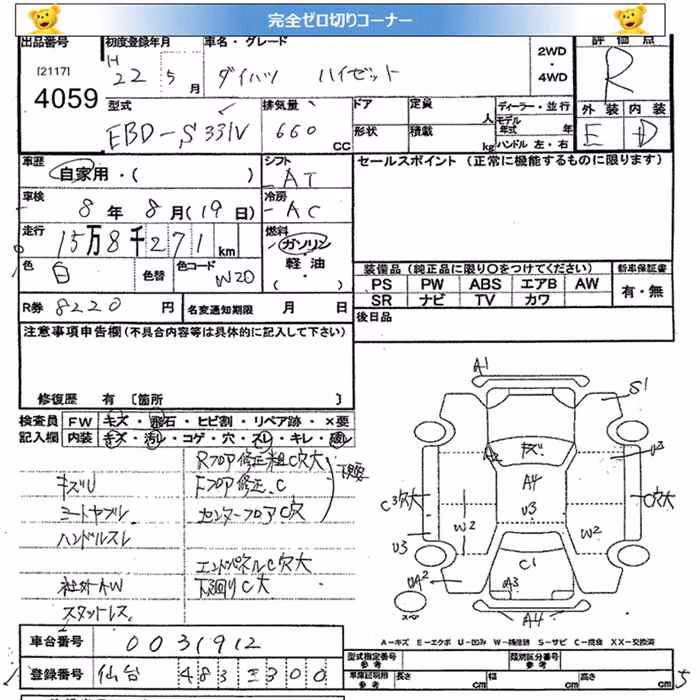 完全ゼロ切りコーナー
出品番号 初度登録年月 車名・グレード 評価点
[2117] H 22 5 月 ダイハツ ハイゼット 2WD ・ 4WD R
4059
型式 排気量 ドア 定員 人 ディーラー・並行 外装 内装
EBD-S331V 660 cc 形状 積載 kg モデル年式 年 E D
ハンドル 左・右
車歴 自家用・( ) シフト AT セールスポイント (正常に機能するものに限ります)
車検 8 年 8 月(19 日) 冷房 AC
走行 15万8千271 km 燃料 ガソリン
色 白 色替 色コード W20 軽油 ( ・ )
装備品 (純正品に限り○をつけてください) 新車保証書
PS PW ABS エアB AW 有・無
SR ナビ TV カワ
R券 8220 円 名変通知期限 月 日 後日品
注意事項申告欄 (不具合内容等は具体的に記入して下さい)
修復歴 有 [箇所 ]
検査員 FW キズ・飛石・ヒビ割・リペア跡・×要
記入欄 内装 キズ・汚レ・コゲ・穴・スレ・キレ・破レ
Rフロア修正粗C穴大
キズU Fフロア修正.C
ミートヤブレ センターフロアC穴
ハンドルスレ
エンドパネルC穴大
社外AW 下廻りC大
スタットレス
A1
S1
A2 キズ U3
A4
C3穴大 U3 C穴大
W2 W2
U3
C1
UA2 UA3
スペア A4
A－キズ E－エクボ U－凹み W－補修跡 S－サビ C－腐食 XX－交換済
車台番号 0031912
型式指定番号 参考 類別区分番号 参考
登録番号 仙台 483 ミ300
車庫証明用 参考 長さ cm 幅 cm 高さ cm